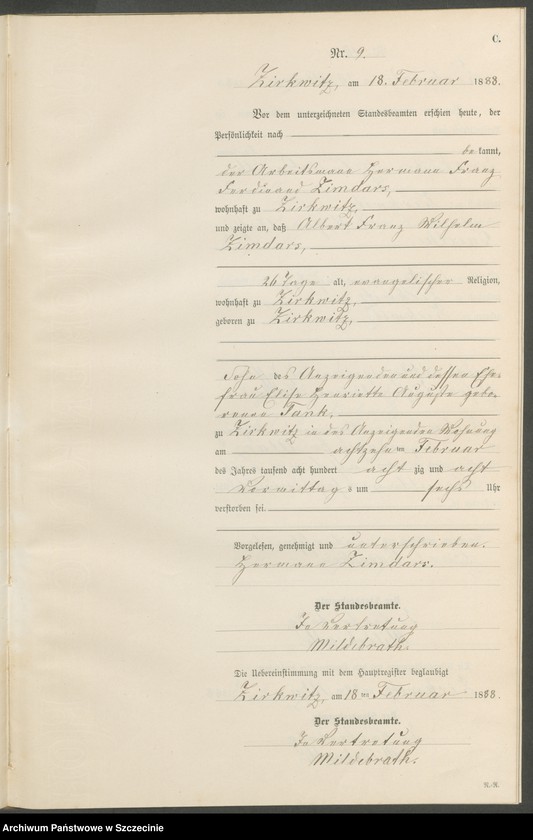 C.
Nr. 9.
Zirkwitz, am 18. Februar 1888.
Vor dem unterzeichneten Standesbeamten erschien heute, der
Persönlichkeit nach
bekannt,
der Arbeitsmann Hermann Franz
Ferdinand Zimdars,
wohnhaft zu Zirkwitz,
und zeigte an, daß Albert Franz Wilhelm
Zimdars,
26 Tage alt, evangelischer Religion,
wohnhaft zu Zirkwitz,
geboren zu Zirkwitz,
Sohn des Anzeigenden und dessen Ehe-
frau Elise Henriette Auguste gebo-
renen Tank,
zu Zirkwitz in des Anzeigenden Wohnung
am achtzehnten Februar
des Jahres tausend acht hundert achtzig und acht
Vormittags um sechs Uhr
verstorben sei.
Vorgelesen, genehmigt und unterschrieben.
Hermann Zimdars.
Der Standesbeamte.
In Vertretung
Mildebrath.
Die Uebereinstimmung mit dem Hauptregister beglaubigt
Zirkwitz, am 18ten Februar 1888.
Der Standesbeamte.
In Vertretung
Mildebrath.
Archiwum Państwowe w Szczecinie